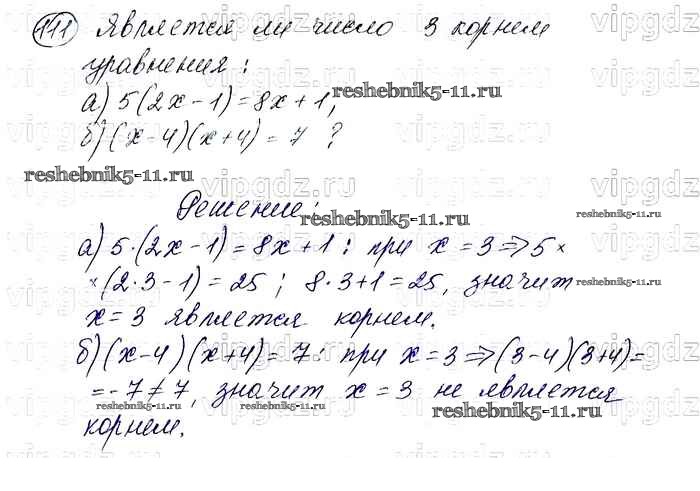 111 Является ли число 3 корнем
уравнения:
а) 5(2x-1)=8x+1,
reshebnik5-11.ru
б) (x-4)(x+4)=7 ?
reshebnik5-11.ru
Решение:
reshebnik5-11.ru
reshebnik5-11.ru
а) 5·(2x-1)=8x+1: при x=3⇒5×
×(2·3-1)=25; 8·3+1=25, значит
reshebnik5-11.ru
x=3 является корнем.
б) (x-4)(x+4)=7. при x=3⇒(3-4)(3+4)=
=-7≠7, значит x=3 не является
reshebnik5-11.ru
reshebnik5-11.ru
reshebnik5-11.ru
корнем.
vipgdz.ru